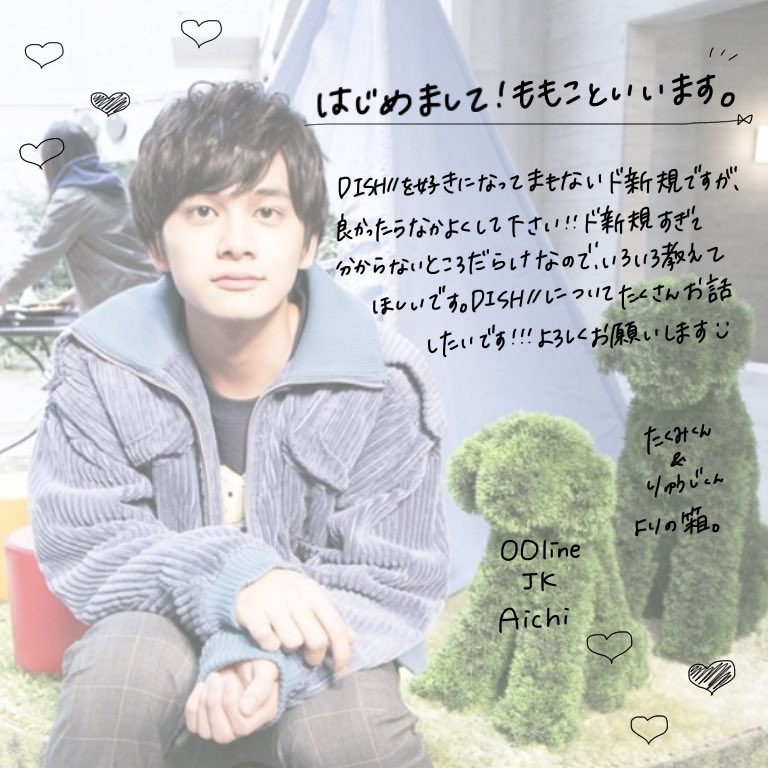 はじめまして!ももこといいます。
DISH//を好きになってまもないド新規ですが、
良かったらなかよくして下さい!!ド新規すぎて
分からないところだらけなので、いろいろ教えて
ほしいです。DISH//についてたくさんお話
したいです!!!よろしくお願いします
たくみくん
&
りゅうじくん
よりの箱。
00line
JK
Aichi